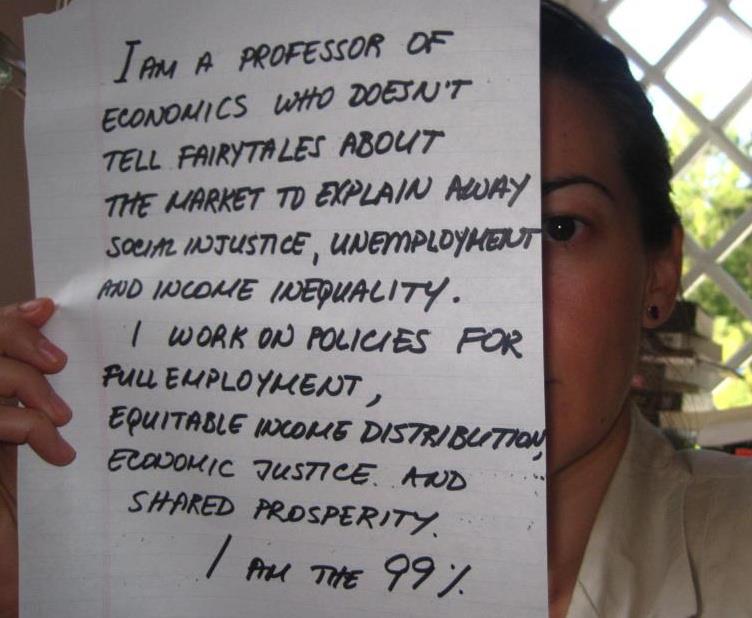 I AM A PROFESSOR OF
ECONOMICS WHO DOESN'T
TELL FAIRYTALES ABOUT
THE MARKET TO EXPLAIN AWAY
SOCIAL INJUSTICE, UNEMPLOYMENT
AND INCOME INEQUALITY.
I WORK ON POLICIES FOR
FULL EMPLOYMENT,
EQUITABLE INCOME DISTRIBUTION,
ECONOMIC JUSTICE AND
SHARED PROSPERITY.
I AM THE 99%